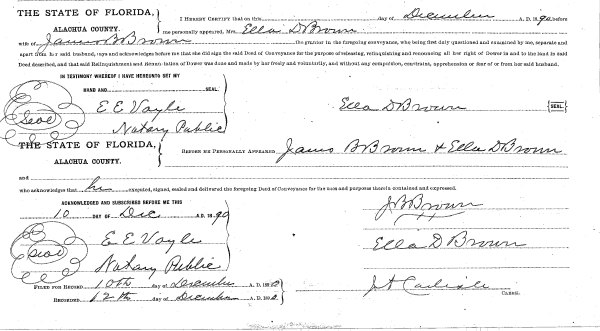 THE STATE OF FLORIDA,
ALACHUA COUNTY.
I HEREBY CERTIFY that on this day of December A. D. 1890, before
me personally appeared, Mrs. Ella D Brown
wife of James B Brown the grantor in the foregoing conveyance, who being first duly questioned and examined by me, separate and
apart from her said husband, says and acknowledges before me that she did sign the said Deed of Conveyance for the purpose of releasing, relinquishing and all her right of Dower in and to the land in said
Deed described, and that said Relinquishment and Renunciation of Dower was done and made by her freely and voluntarily, and without any compulsion, constraint, apprehension or fear of or from her said husband.
IN TESTIMONY WHEREOF I HAVE HEREUNTO SET MY
HAND AND SEAL.
Seal
E E Voyle
Notary Public
Ella D Brown
{SEAL.}
THE STATE OF FLORIDA,
ALACHUA COUNTY.
BEFORE ME PERSONALLY APPEARED James B Brown & Ella D Brown
and
who acknowledges that he executed, signed, sealed and delivered the foregoing Deed of Conveyance for the uses and purposes therein contained and expressed.
ACKNOWLEDGED AND SUBSCRIBED BEFORE ME THIS
10 DAY OF Dec A. D. 1890
J B Brown
Seal
E E Voyle
Notary Public
Ella D Brown
FILED FOR RECORD 10th day of December A. D. 1890
RECORDED 12th day of December 1890
CLERK.